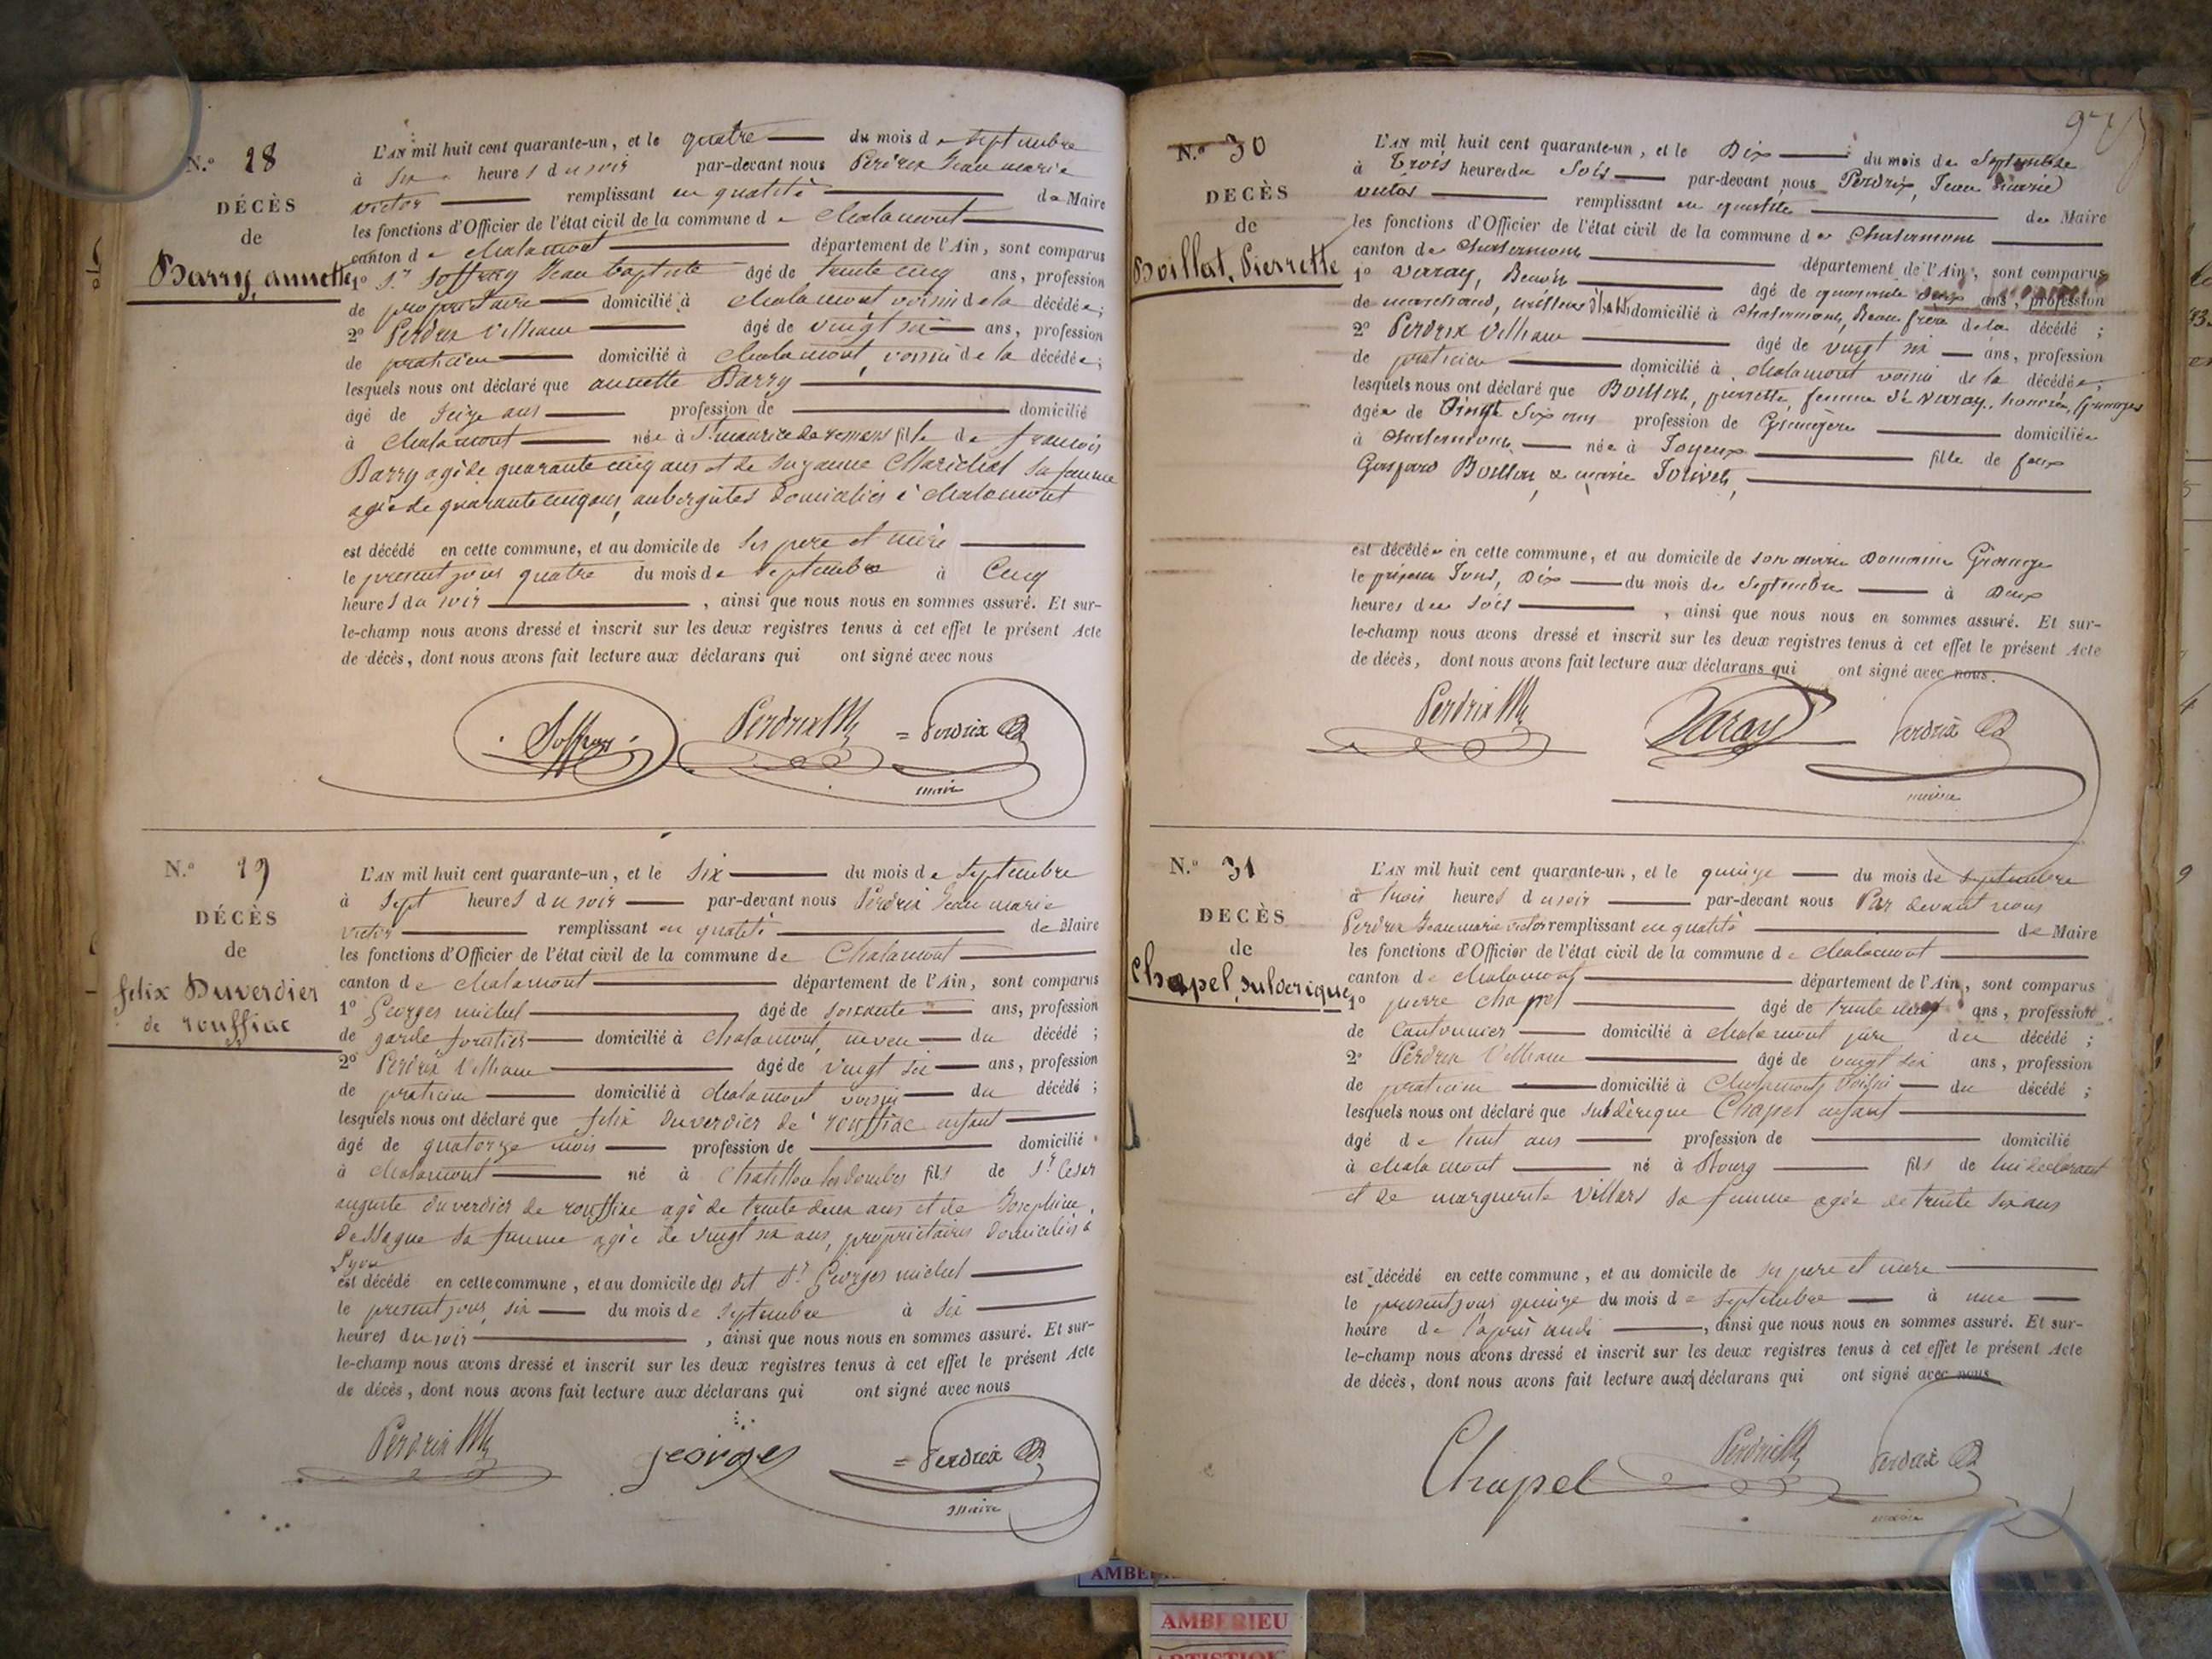 N.º 28
DÉCÈS
de
Barry, annette
L'AN mil huit cent quarante-un, et le quatre du mois de septembre
à six heures du soir par-devant nous Perdrix Jean marie
victor remplissant en qualité de Maire
les fonctions d'Officier de l'état civil de la commune de chalamont
canton de chalamont département de l'Ain, sont comparus
1º Sr. Soffray Jean baptiste âgé de trente cinq ans, profession
de propriétaire domicilié à chalamont voisin de la décédée;
2º Perdrix William âgé de vingt six ans, profession
de praticien domicilié à chalamont, voisin de la décédée;
lesquels nous ont déclaré que annette Barry
âgé de seize ans profession de domicilié
à chalamont née à St. maurice de remens fille de francois
Barry agé de quarante cinq ans et de Suzanne Maréchal sa femme
agée de quarante cinq ans, aubergistes domiciliés à chalamont
est décédé en cette commune, et au domicile de ses pere et mère
le present jour quatre du mois de septembre à Cinq
heures du soir , ainsi que nous nous en sommes assuré. Et sur-
le-champ nous avons dressé et inscrit sur les deux registres tenus à cet effet le présent Acte
de décès, dont nous avons fait lecture aux déclarans qui ont signé avec nous
Soffray Perdrix = Perdrix
maire
N.º 29
DÉCÈS
de
felix Duverdier
de rouffiac
L'AN mil huit cent quarante-un, et le six du mois de septembre
à sept heures du soir par-devant nous Perdrix Jean marie
victor remplissant en qualité de Maire
les fonctions d'Officier de l'état civil de la commune de Chalamont
canton de chalamont département de l'Ain, sont comparus
1º Georges michel âgé de soixante ans, profession
de garde forestier domicilié à chalamont, neveu du décédé;
2º Perdrix William âgé de vingt six ans, profession
de praticien domicilié à chalamont voisin du décédé;
lesquels nous ont déclaré que felix Duverdier de rouffiac enfant
âgé de quatorze mois profession de domicilié
à chalamont né à Chatillon les dombes fils de Sr. César
auguste duverdier de rouffiac agé de trente deux ans et de Josephine
sa femme agée de vingt six ans, propriétaires domiciliés à
Lyon
est décédé en cette commune, et au domicile des dit Sr. Georges michel
le present jour six du mois de septembre à six
heures du soir , ainsi que nous nous en sommes assuré. Et sur-
le-champ nous avons dressé et inscrit sur les deux registres tenus à cet effet le présent Acte
de décès, dont nous avons fait lecture aux déclarans qui ont signé avec nous
Perdrix georges = Perdrix
maire
N.º 30
DECÈS
de
Boillat, Pierrette
L'AN mil huit cent quarante-un, et le Dix du mois de Septembre
à trois heures du Soir par-devant nous Perdrix, Jean marie
victor remplissant en qualité de Maire
les fonctions d'Officier de l'état civil de la commune de Chalamont
canton de Chalamont département de l'Ain, sont comparus
1º Varay, Benoit âgé de quarante deux ans, profession
de marchand, domicilié à Chalamont, Beau frère de la décédé;
2º Perdrix William âgé de vingt six ans, profession
de praticien domicilié à chalamont voisin de la décédée;
lesquels nous ont déclaré que Boillat, pierrette, femme de Varay,
âgée de Vingt Six ans profession de Grangère domiciliée
à Chalamont née à Joyeux fille de feux
Gaspard Boillat, & marie Jolivet,
est décédée en cette commune, et au domicile de son marie Domaine Grange
le présent Jour, Dix du mois de Septembre à Deux
heures du Soir , ainsi que nous nous en sommes assuré. Et sur-
le-champ nous avons dressé et inscrit sur les deux registres tenus à cet effet le présent Acte
de décès, dont nous avons fait lecture aux déclarans qui ont signé avec nous.
Perdrix Varay Perdrix
maire
N.º 31
DECÈS
de
Chapel, sulderique
L'AN mil huit cent quarante-un, et le quinze du mois de septembre
à trois heures du soir par-devant nous Par devant nous
Perdrix Jean marie victor remplissant en qualité de Maire
les fonctions d'Officier de l'état civil de la commune de chalamont
canton de chalamont département de l'Ain, sont comparus
1º pierre chapel âgé de trente neuf ans, profession
de Cantonnier domicilié à chalamont père du décédé;
2º Perdrix William âgé de vingt six ans, profession
de praticien domicilié à Chalamont, voisin du décédé;
lesquels nous ont déclaré que sulderique Chapel enfant
âgé de huit ans profession de domicilié
à chalamont né à Bourg fils de lui déclarant
et de marguerite Villars sa femme agée de trente six ans
est décédé en cette commune, et au domicile de ses pere et mere
le present jour quinze du mois de septembre à une
heure de l'après midi , ainsi que nous nous en sommes assuré. Et sur-
le-champ nous avons dressé et inscrit sur les deux registres tenus à cet effet le présent Acte
de décès, dont nous avons fait lecture aux déclarans qui ont signé avec nous
Chapel Perdrix Perdrix
maire
AMBERIEU